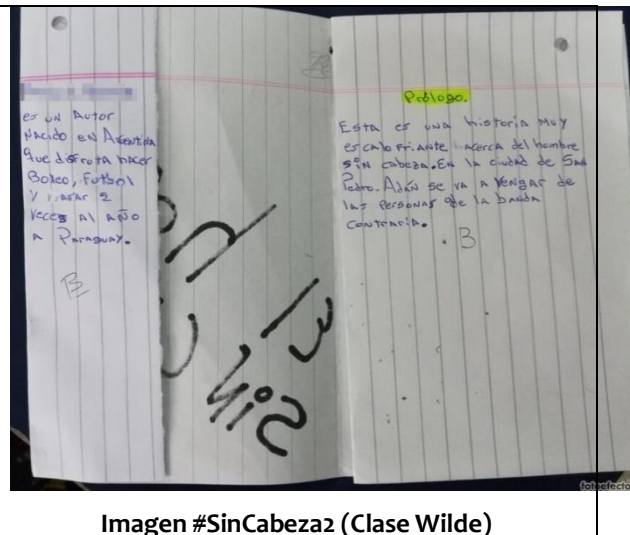 es un Autor
Nacido en Argentina
que disfruta hacer
Boxeo, Futbol
y viajar 2
veces al año
a Paraguay.
B
El
Sin
Prólogo.
Esta es una historia muy
escalofriante acerca del hombre
sin cabeza. En la ciudad de San
Pedro. Adán se va a vengar de
las personas de la banda
contraria.
B
fotoefectos
Imagen #SinCabeza2 (Clase Wilde)